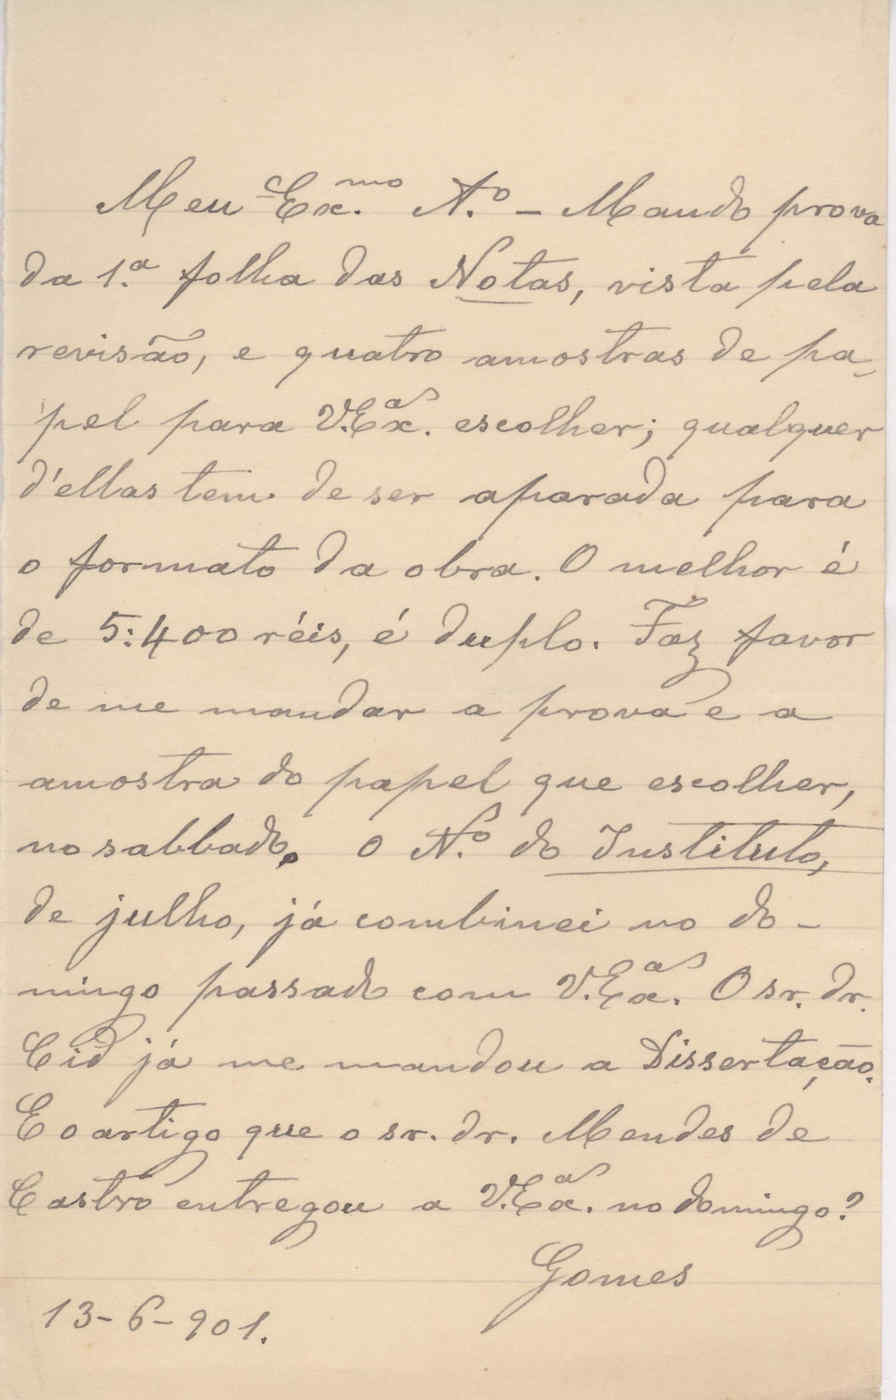 Meu Ex.mo A.º — Mando prova
da 1.ª folha das Notas, vista pela
revisão, e quatro amostras de pa-
pel para V. Ex.ª escolher; qualquer
d'ellas tem de ser aparada para
o formato da obra. O melhor é
de 5:400 réis, é duplo. Faz favor
de me mandar a prova e a
amostra do papel que escolher,
no sabbado. O N.º do Instituto,
de julho, já combinei no do-
mingo passado com V. Ex.ª. O sr. dr.
Cid já me mandou a Dissertação.
E o artigo que o sr. dr. Mendes de
Castro entregou a V. Ex.ª. no domingo?
Gomes
13-6-901.